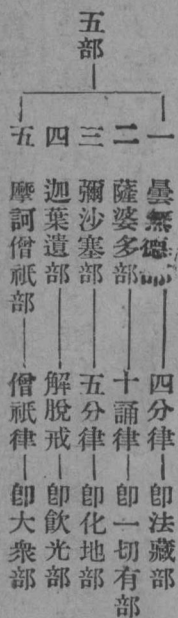 五部
一 曇無德部——四分律—卽法藏部
二 薩婆多部——十誦律—卽一切有部
三 彌沙塞部——五分律—卽化地部
四 迦葉遺部——解脫戒—卽飮光部
五 摩訶僧祇部——僧祇律—卽大衆部